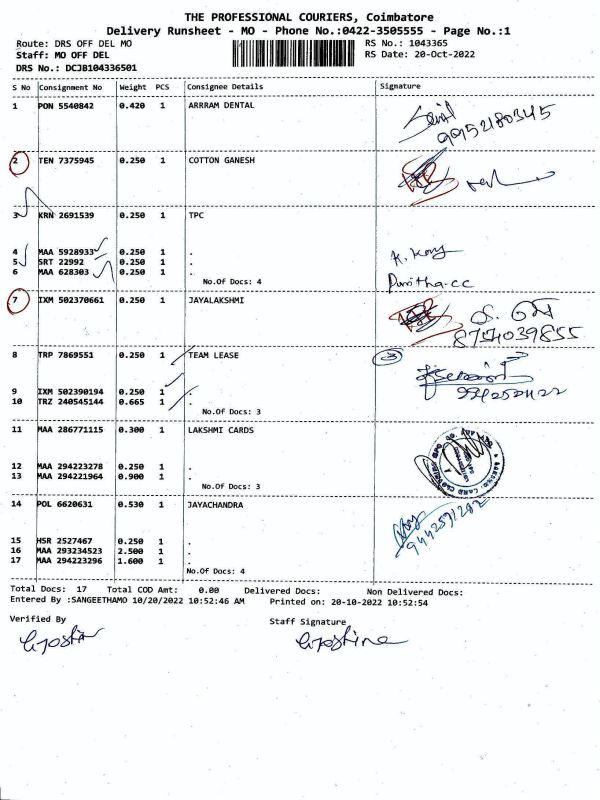 THE PROFESSIONAL COURIERS, Coimbatore
Delivery Runsheet - MO - Phone No.:0422-3505555 - Page No.:1
Route: DRS OFF DEL MO RS No.: 1043365
Staff: MO OFF DEL RS Date: 20-Oct-2022
DRS No.: DCJB104336501
S No Consignment No Weight PCS Consignee Details Signature
1 PON 5540842 0.420 1 ARRRAM DENTAL
9952180345
2 TEN 7375945 0.250 1 COTTON GANESH
3 KRN 2691539 0.250 1 TPC
4 MAA 5928933 0.250 1 .
5 SRT 22992 0.250 1 .
6 MAA 628303 0.250 1 .
No.Of Docs: 4
Punitha-cc
7 IXM 502370661 0.250 1 JAYALAKSHMI
8754039855
8 TRP 7869551 0.250 1 TEAM LEASE
3
9 IXM 502390194 0.250 1 .
10 TRZ 240545144 0.665 1 .
No.Of Docs: 3
11 MAA 286771115 0.300 1 LAKSHMI CARDS
12 MAA 294223278 0.250 1 .
13 MAA 294221964 0.900 1 .
No.Of Docs: 3
14 POL 6620631 0.530 1 JAYACHANDRA
9442591282
15 HSR 2527467 0.250 1 .
16 MAA 293234523 2.500 1 .
17 MAA 294223296 1.600 1 .
No.Of Docs: 4
Total Docs: 17 Total COD Amt: 0.00 Delivered Docs: Non Delivered Docs:
Entered By :SANGEETHAMO 10/20/2022 10:52:46 AM Printed on: 20-10-2022 10:52:54
Verified By Staff Signature